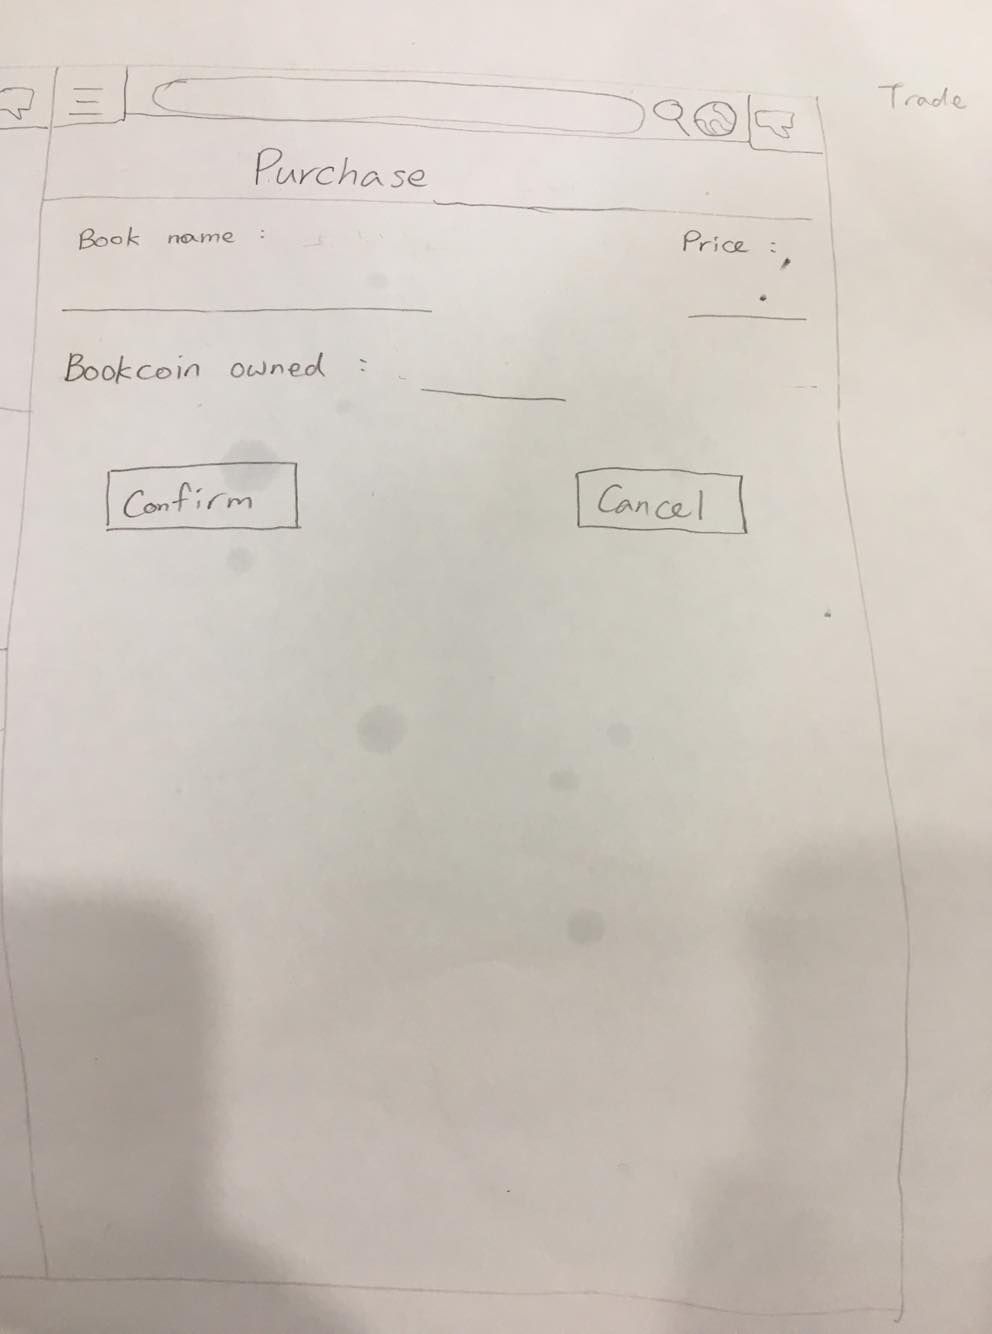 Trade
Purchase
Book name :
Price :
Bookcoin owned :
Confirm
Cancel